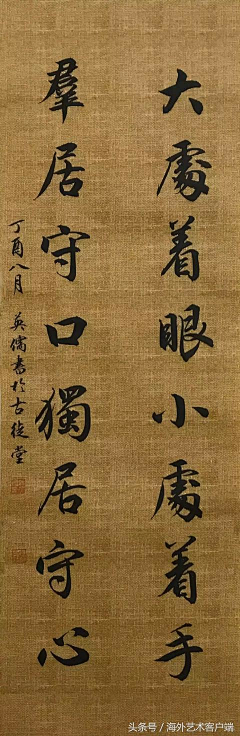 大處着眼小處着手
羣居守口獨居守心
丁酉八月 英儒書於古硯堂
头条号 / 海外艺术客户端